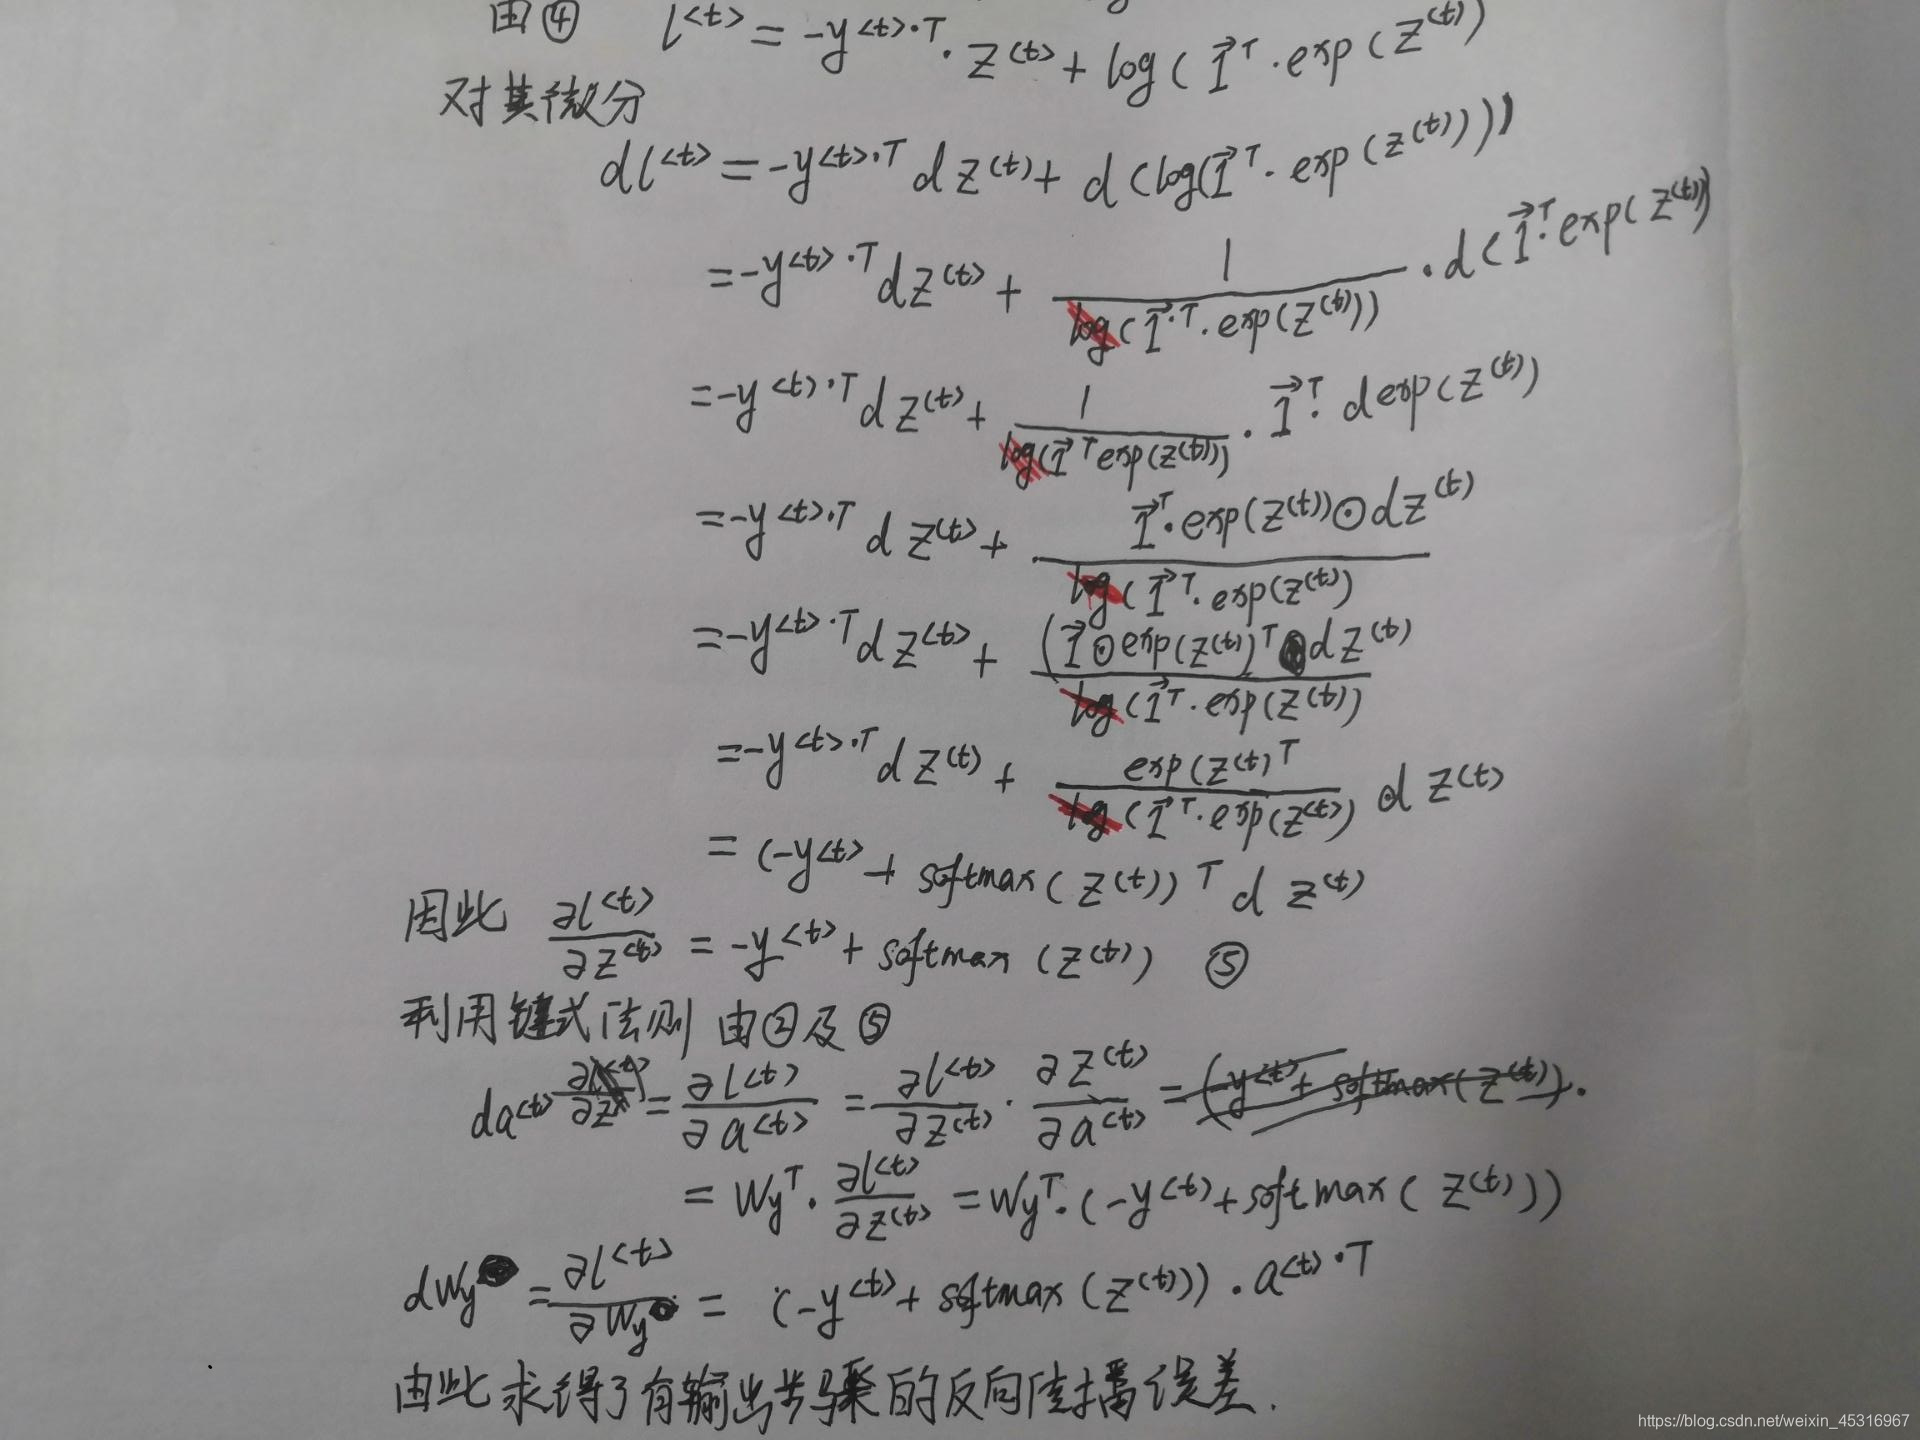 由④ l^{<t>} = -y^{<t>·T}·z^{(t)} + log(\vec{1}^T·exp(z^{(t)})
对其微分
dl^{<t>} = -y^{<t>·T} dz^{(t)} + d(log(\vec{1}^T·exp(z^{(t)})))
= -y^{<t>·T} dz^{(t)} + \frac{1}{log(\vec{1}^{·T}·exp(z^{(t)}))}·d(\vec{1}^T·exp(z^{(t)})
= -y^{<t>·T} dz^{(t)} + \frac{1}{log(\vec{1}^T exp(z^{(t)}))}·\vec{1}^T·dexp(z^{(t)})
= -y^{<t>·T} dz^{(t)} + \frac{\vec{1}^T·exp(z^{(t)})⊙dz^{(t)}}{log(\vec{1}^T·exp(z^{(t)})}
= -y^{<t>·T} dz^{(t)} + \frac{(\vec{1}⊙exp(z^{(t)})^T dz^{(t)}}{log(\vec{1}^T·exp(z^{(t)})}
= -y^{<t>·T} dz^{(t)} + \frac{exp(z^{(t)})^T}{log(\vec{1}^T·exp(z^{(t)})} dz^{(t)}
= (-y^{<t>} + softmax(z^{(t)}))^T dz^{(t)}
因此 \frac{∂l^{<t>}}{∂z^{(t)}} = -y^{<t>} + softmax(z^{(t)}) ⑤
利用键式法则 由②及⑤
da^{<t>} = \frac{∂l^{<t>}}{∂a^{<t>}} = \frac{∂l^{<t>}}{∂z^{(t)}}·\frac{∂z^{(t)}}{∂a^{<t>}} = (-y^{<t>} + softmax(z^{(t)})·
= Wy^T·\frac{∂l^{<t>}}{∂z^{(t)}} = Wy^T·(-y^{<t>} + softmax(z^{(t)}))
dWy = \frac{∂l^{<t>}}{∂Wy} = (-y^{<t>} + softmax(z^{(t)}))·a^{<t>·T}
由此求得了有输出步骤的反向传播误差.
https://blog.csdn.net/weixin_45316967